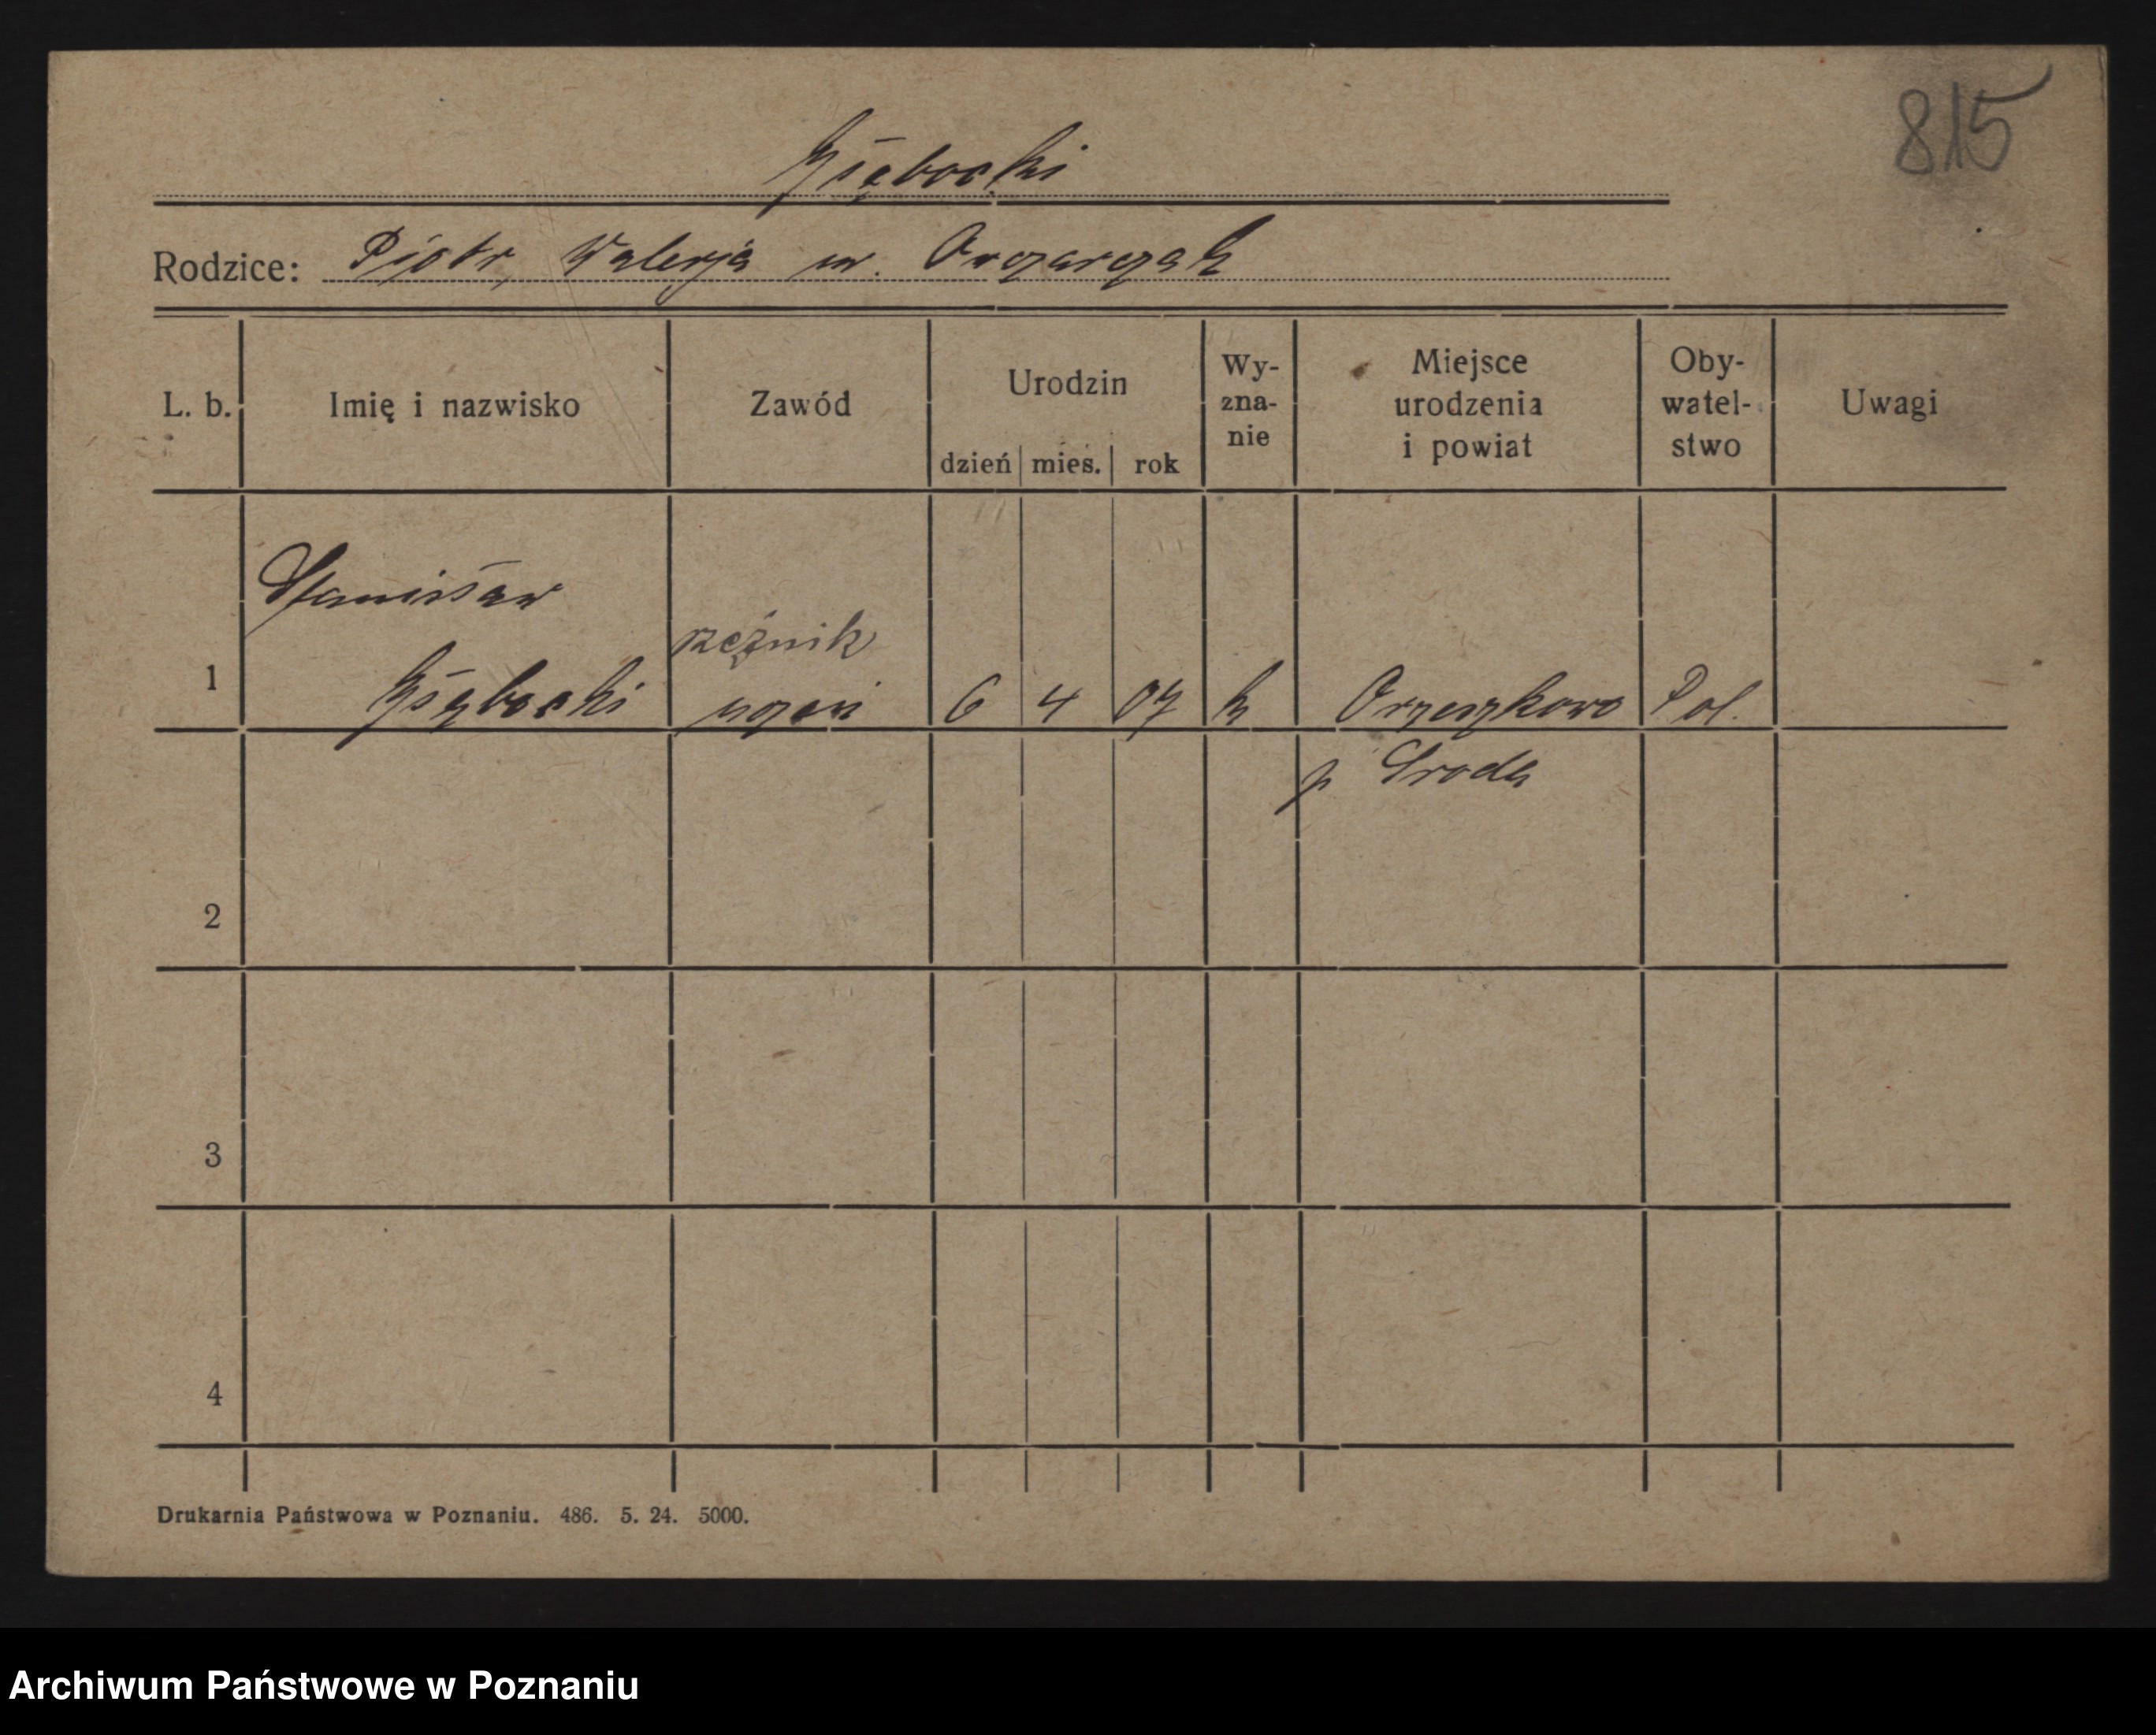 815
Głębocki
Rodzice: Piotr, Walerja ur. Owczarczak
L. b. Imię i nazwisko Zawód Urodzin dzień mies. rok Wy-zna-nie Miejsce urodzenia i powiat Oby-watel-stwo Uwagi
Stanisław
rzeźnik
1 Głębocki uczeń 6 4 07 k Orzeszkowo Pol.
p Sroda
2
3
4
Drukarnia Państwowa w Poznaniu. 486. 5. 24. 5000.
Archiwum Państwowe w Poznaniu